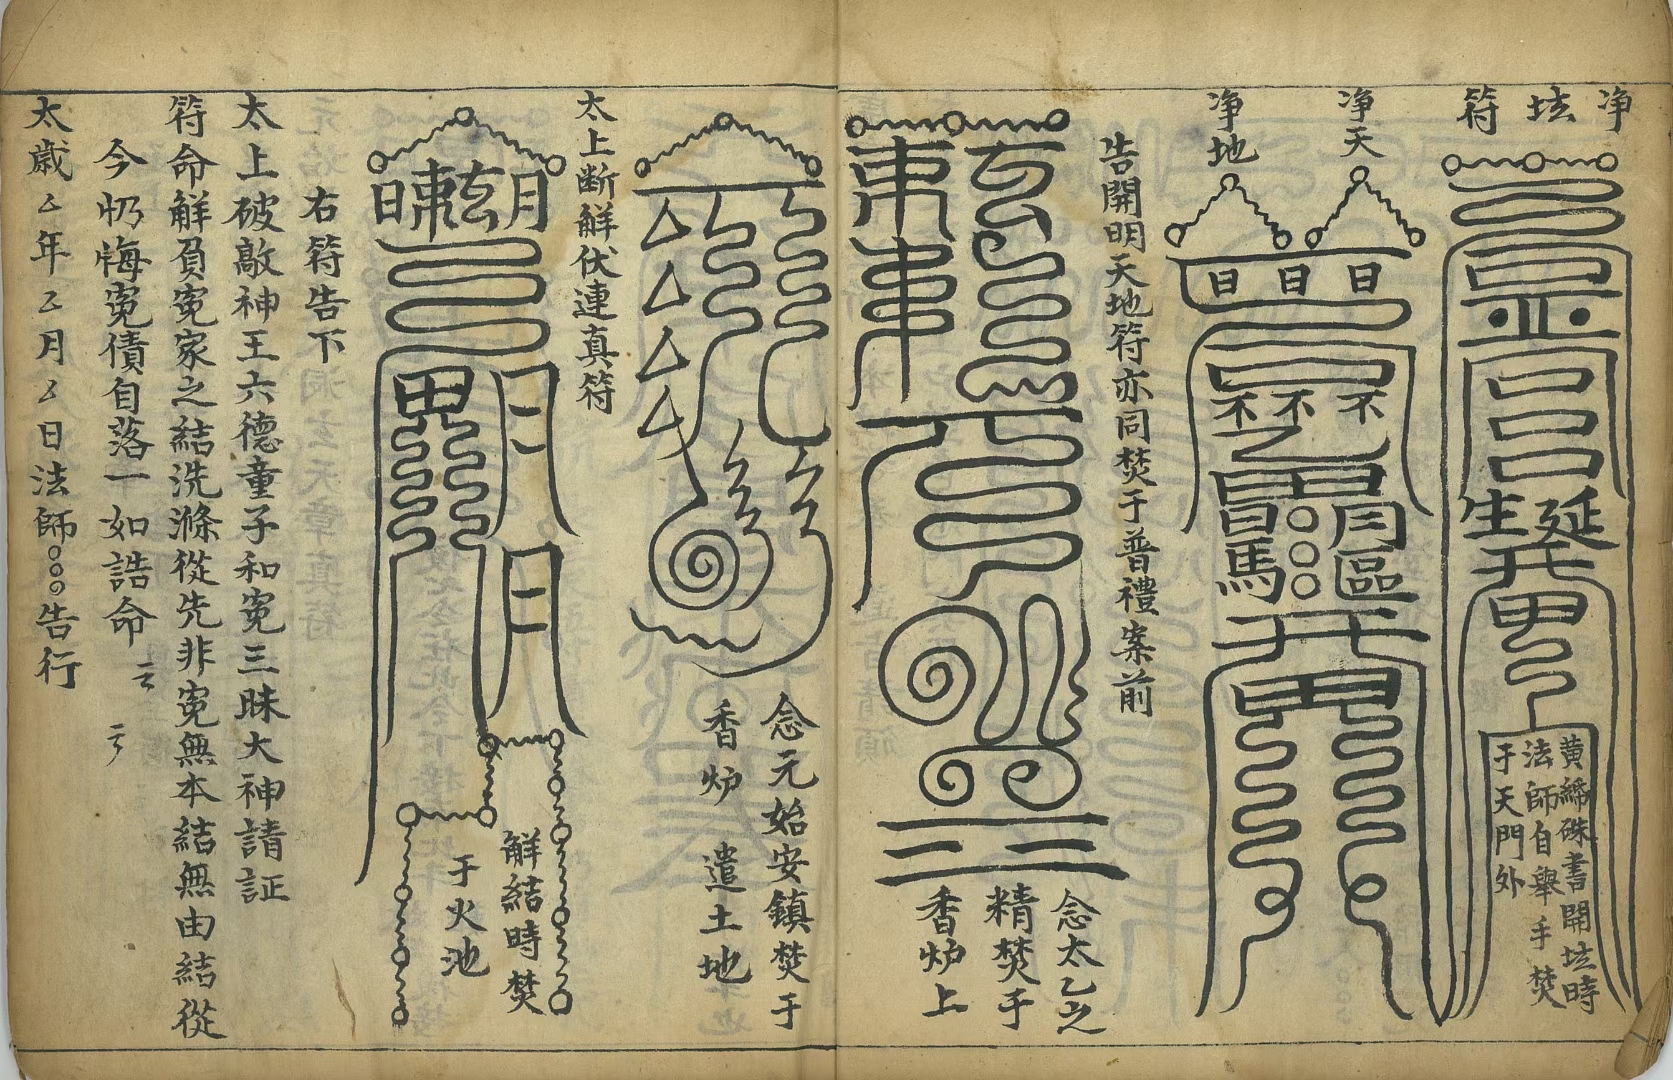 净坛符
黄締硃書開坛時
法師自舉手焚
于天門外
净天
净地
告開明天地符亦同焚于普禮案前
念太乙之
精焚于
香炉上
念元始安鎮焚于
香炉 遣土地
太上断觧伏連真符
觧結時焚
于火池
右符告下
太上破敵神王六德童子和寃三昧大神請証
符命觧負寃家之結洗滌從先非寃無本結無由結從
今扔悔寃債自落一如誥命
太歲厶年厶月厶日法師○○○告行